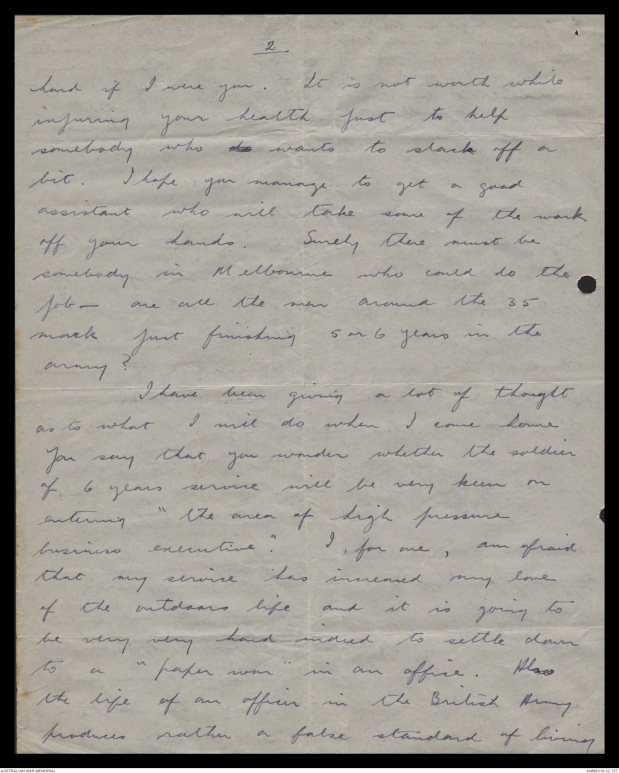 2
hard if I were you. It is not worth while
injuring your health just to help
somebody who wants to slack off a
bit. I hope you manage to get a good
assistant who will take some of the work
off your hands. Surely there must be
somebody in Melbourne who could do the
job — are all the men around the 35
mark just finishing 5 or 6 years in the
army?
I have been giving a lot of thought
as to what I will do when I come home
You say that you wonder whether the soldier
of 6 years service will be very keen on
entering "the area of high pressure
business executive". I, for one, am afraid
that my service has increased my love
of the outdoors life and it is going to
be very very hard indeed to settle down
to a "paper war" in an office. Also
the life of an officer in the British Army
produces rather a false standard of living
AUSTRALIAN WAR MEMORIAL